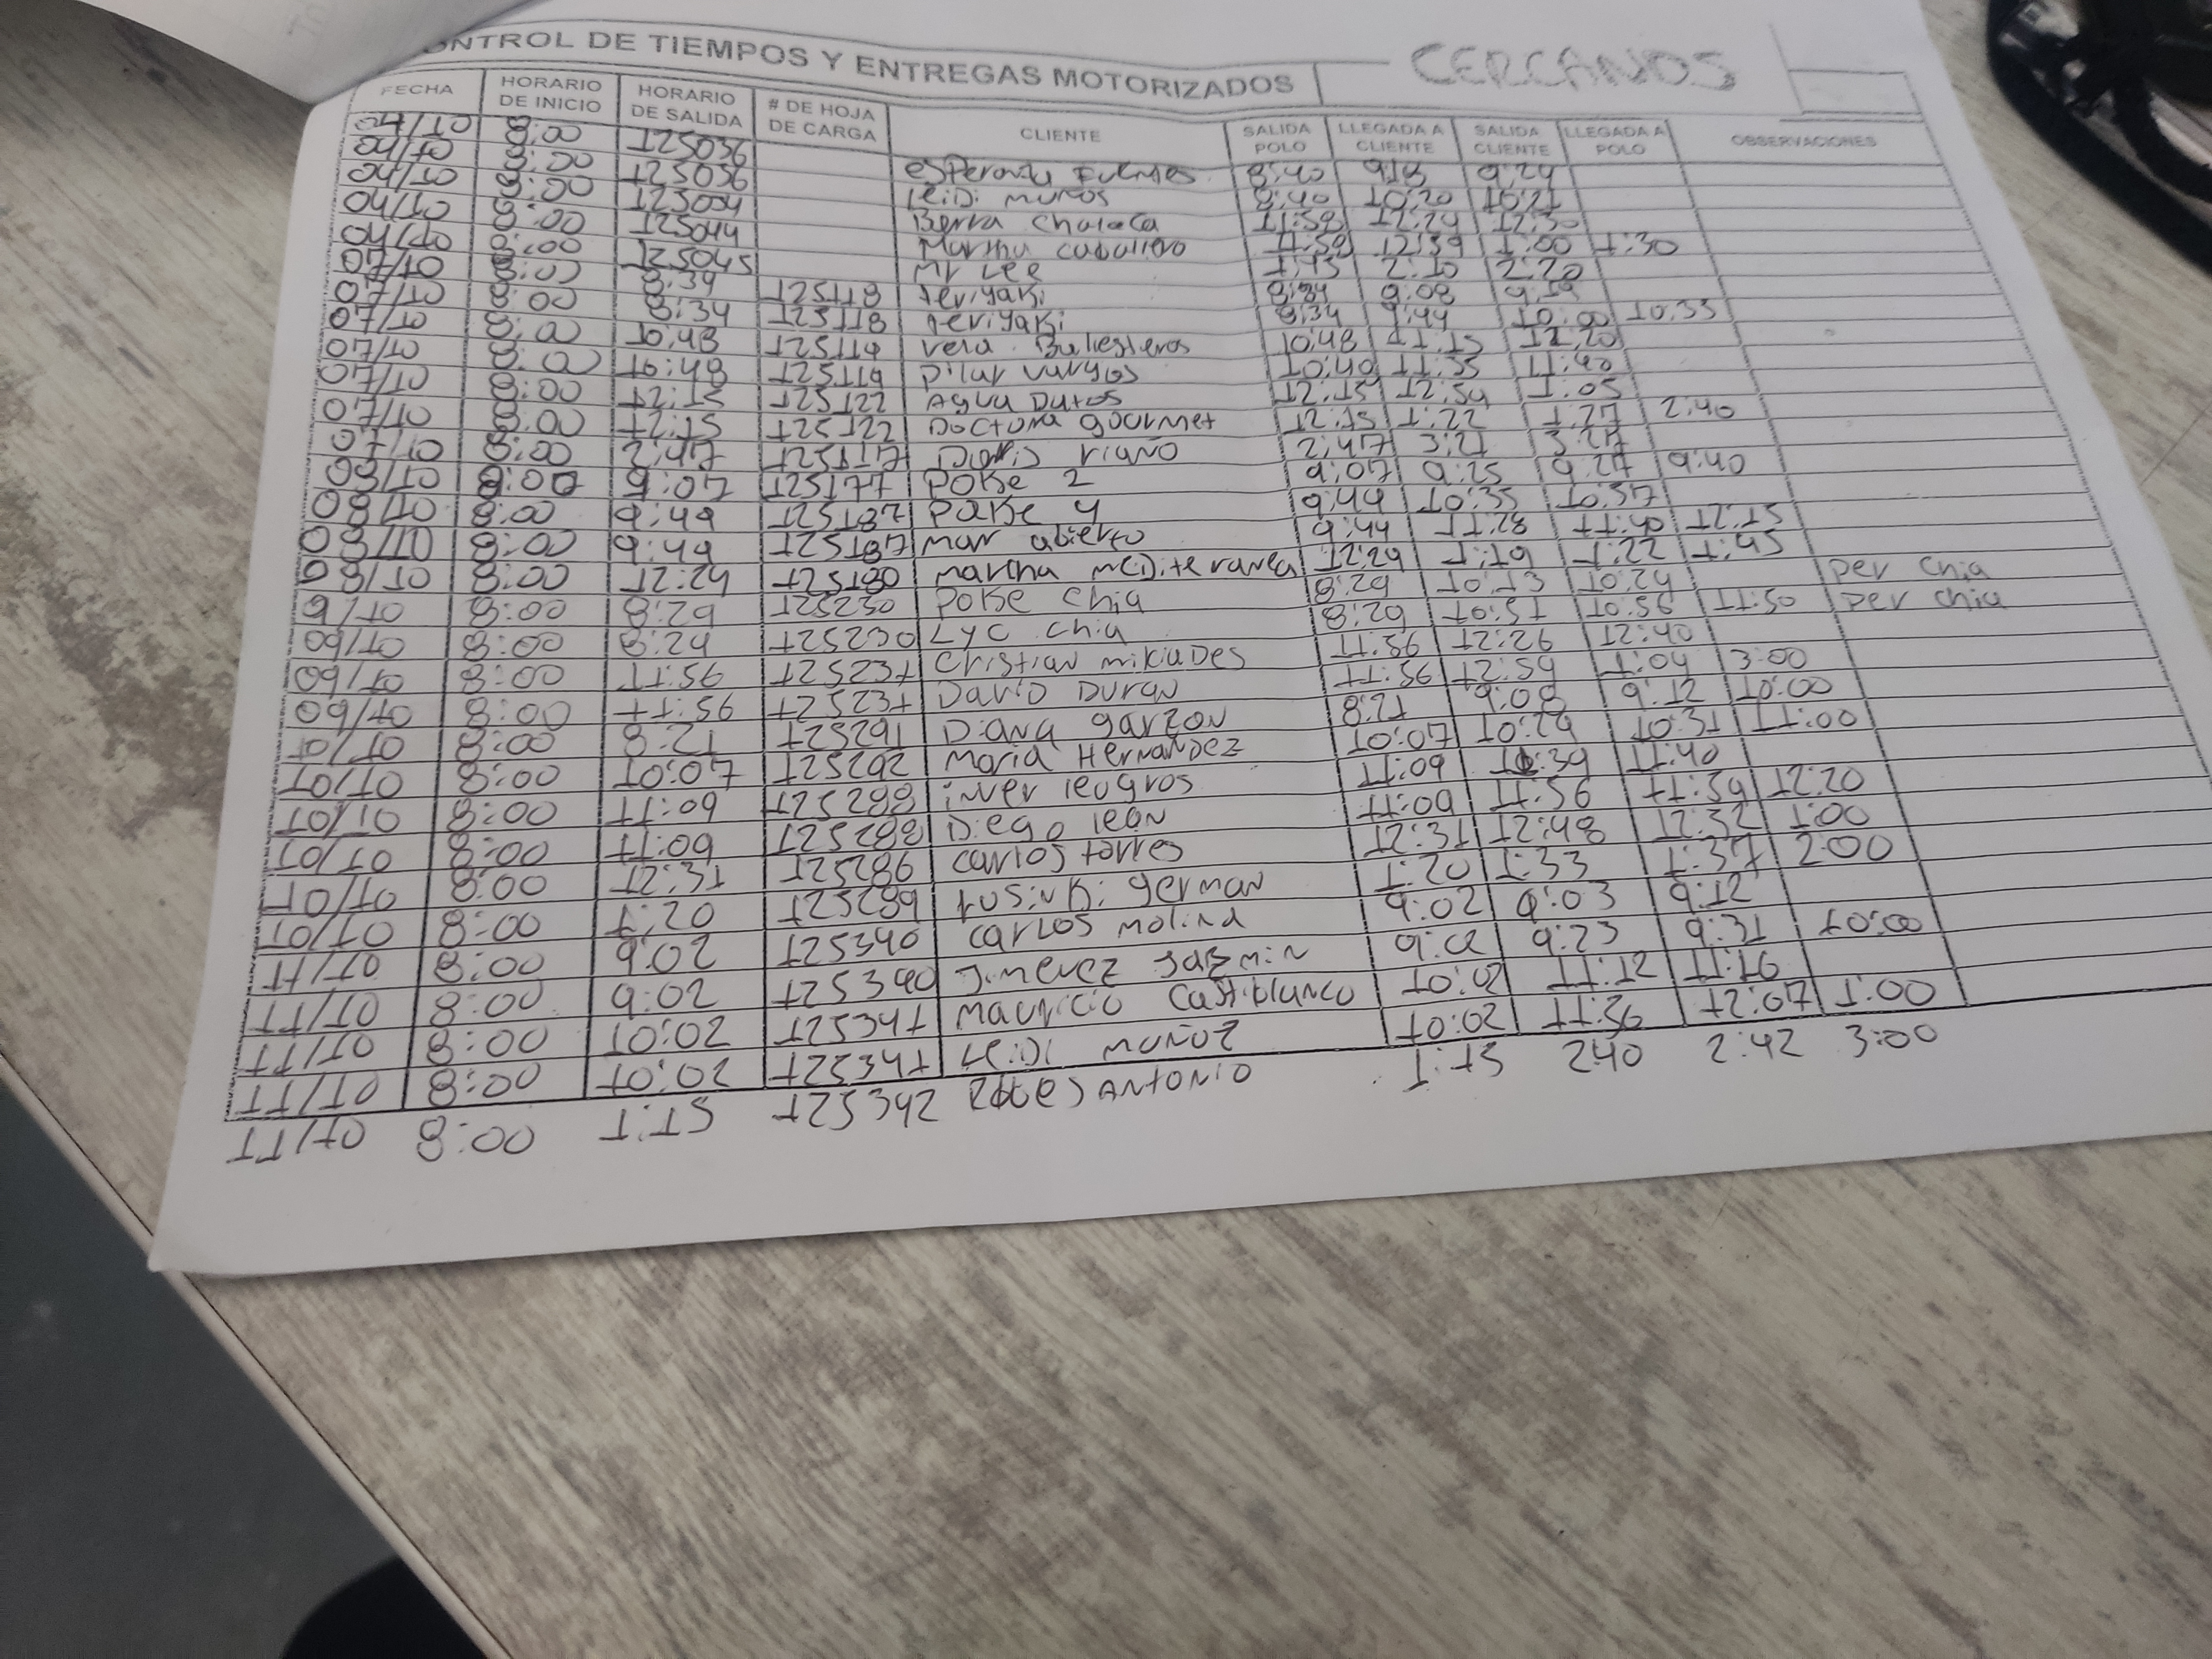 ONTROL DE TIEMPOS Y ENTREGAS MOTORIZADOS CERCANOS
FECHA HORARIO DE INICIO HORARIO DE SALIDA # DE HOJA DE CARGA CLIENTE SALIDA POLO LLEGADA A CLIENTE SALIDA CLIENTE LLEGADA A POLO OBSERVACIONES
04/10 8:00 125036 esperanza Fuentes 8:40 918 9:24
04/10 8:00 125036 leidi muños 8:40 10:20 10:21
04/10 8:00 125034 Berra Chalaca 11:58 12:24 12:30
04/10 8:00 125044 Martha caballero 11:58 12:59 1:00 1:30
04/10 8:00 125045 Mr Lee 1:15 2:10 2:20
07/10 8:00 8:34 125118 teriyaki 8:34 9:08 9:19
07/10 8:00 8:34 125118 teriyaki 8:34 9:44 10:00 10:33
07/10 8:00 10:48 125119 vera Ballesteros 10:48 11:15 12:20
07/10 8:00 10:48 125119 pilar vargas 10:40 11:35 11:40
07/10 8:00 12:15 125122 Agua Dutos 12:15 12:54 1:05
07/10 8:00 12:15 125122 Doctora gourmet 12:15 1:22 1:27 2:40
07/10 8:00 2:47 125117 Doris riaño 2:47 3:21 3:27
08/10 8:00 9:07 125177 Poke 2 9:07 9:25 9:27 9:40
08/10 8:00 9:49 125187 Poke 4 9:44 10:35 10:37
08/10 8:00 9:49 125187 mar abierto 9:44 11:28 11:40 12:15
08/10 8:00 12:24 125180 martha mediteranea 12:29 1:19 1:22 1:45
9/10 8:00 8:29 125230 Poke chia 8:29 10:13 10:24 per chia
09/10 8:00 8:29 125230 LYC chia 8:29 10:51 10:56 11:50 per chia
09/10 8:00 11:56 125231 Cristian mikiades 11:56 12:26 12:40
09/10 8:00 11:56 125231 David Duran 11:56 12:59 1:04 3:00
10/10 8:00 8:21 125291 Diana garzon 8:21 9:08 9:12 10:00
10/10 8:00 10:07 125292 Maria Hernandez 10:07 10:29 10:31 11:00
10/10 8:00 11:09 125288 inver leogros 11:09 11:39 11:40
10/10 8:00 11:09 125288 Diego leon 11:09 11:56 11:59 12:20
10/10 8:00 12:31 125286 carlos torres 12:31 12:48 12:32 1:00
10/10 8:00 1:20 125289 rusinki german 1:20 1:33 1:37 2:00
11/10 8:00 9:02 125340 carlos molina 9:02 9:03 9:12
11/10 8:00 9:02 125340 Jimenez Jazmin 9:02 9:23 9:31 10:00
11/10 8:00 10:02 125341 Mauricio Castiblanco 10:02 11:12 11:16
11/10 8:00 10:02 125341 Leidi muñoz 10:02 11:36 12:07 1:00
11/10 8:00 1:15 125342 ANTONIO 1:15 2:40 2:42 3:00